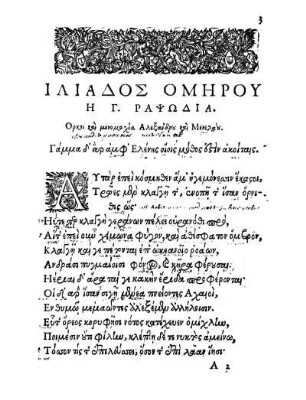 3
ΙΛΙΑΔΟΣ ΟΜΗΡΟΥ
Η Γ. ΡΑΨΩΔΙΑ.
Ορκοι καὶ μονομαχία Αλεξάνδρου καὶ Μενελάου.
Γάμμα δ' ἄρ' ἀμφ' Ελένης οἴοις μόθος ἐστὶν ἀκοίταις.
ΑΥτὰρ ἐπεὶ κόσμηθεν ἅμ' ἡγεμόνεσσιν ἕκαστοι,
Τρῶες μὲν κλαγγῇ τ', ἐνοπῇ τ' ἴσαν ὀρνι-
θες ὡς
Ηΰτε περ κλαγγὴ γεράνων πέλει οὐρανόθι πρό,
Αἵτ' ἐπεὶ οὖν χειμῶνα φύγον, καὶ ἀθέσφατον ὄμβρον,
Κλαγγῇ ταί γε πέτονται ἐπ' ὠκεανοῖο ῥοάων,
Ανδράσι πυγμαίοισι φόνον καὶ κῆρα φέρουσαι.
Ηέριαι δ' ἄρα ταί γε κακὴν ἔριδα προφέρονται.
Οἱ δ' ἄρ' ἴσαν σιγῇ μένεα πνείοντες Αχαιοὶ,
Εν θυμῷ μεμαῶτες ἀλεξέμεν ἀλλήλοισιν.
Εὖτ' ὄρεος κορυφῇσι νότος κατέχευεν ὀμίχλην,
Ποιμέσιν οὔτι φίλην, κλέπτῃ δέ τε νυκτὸς ἀμείνω,
Τόσσόν τίς τ' ἐπιλεύσσει, ὅσον τ' ἐπὶ λᾶαν ἵησι·
A 2